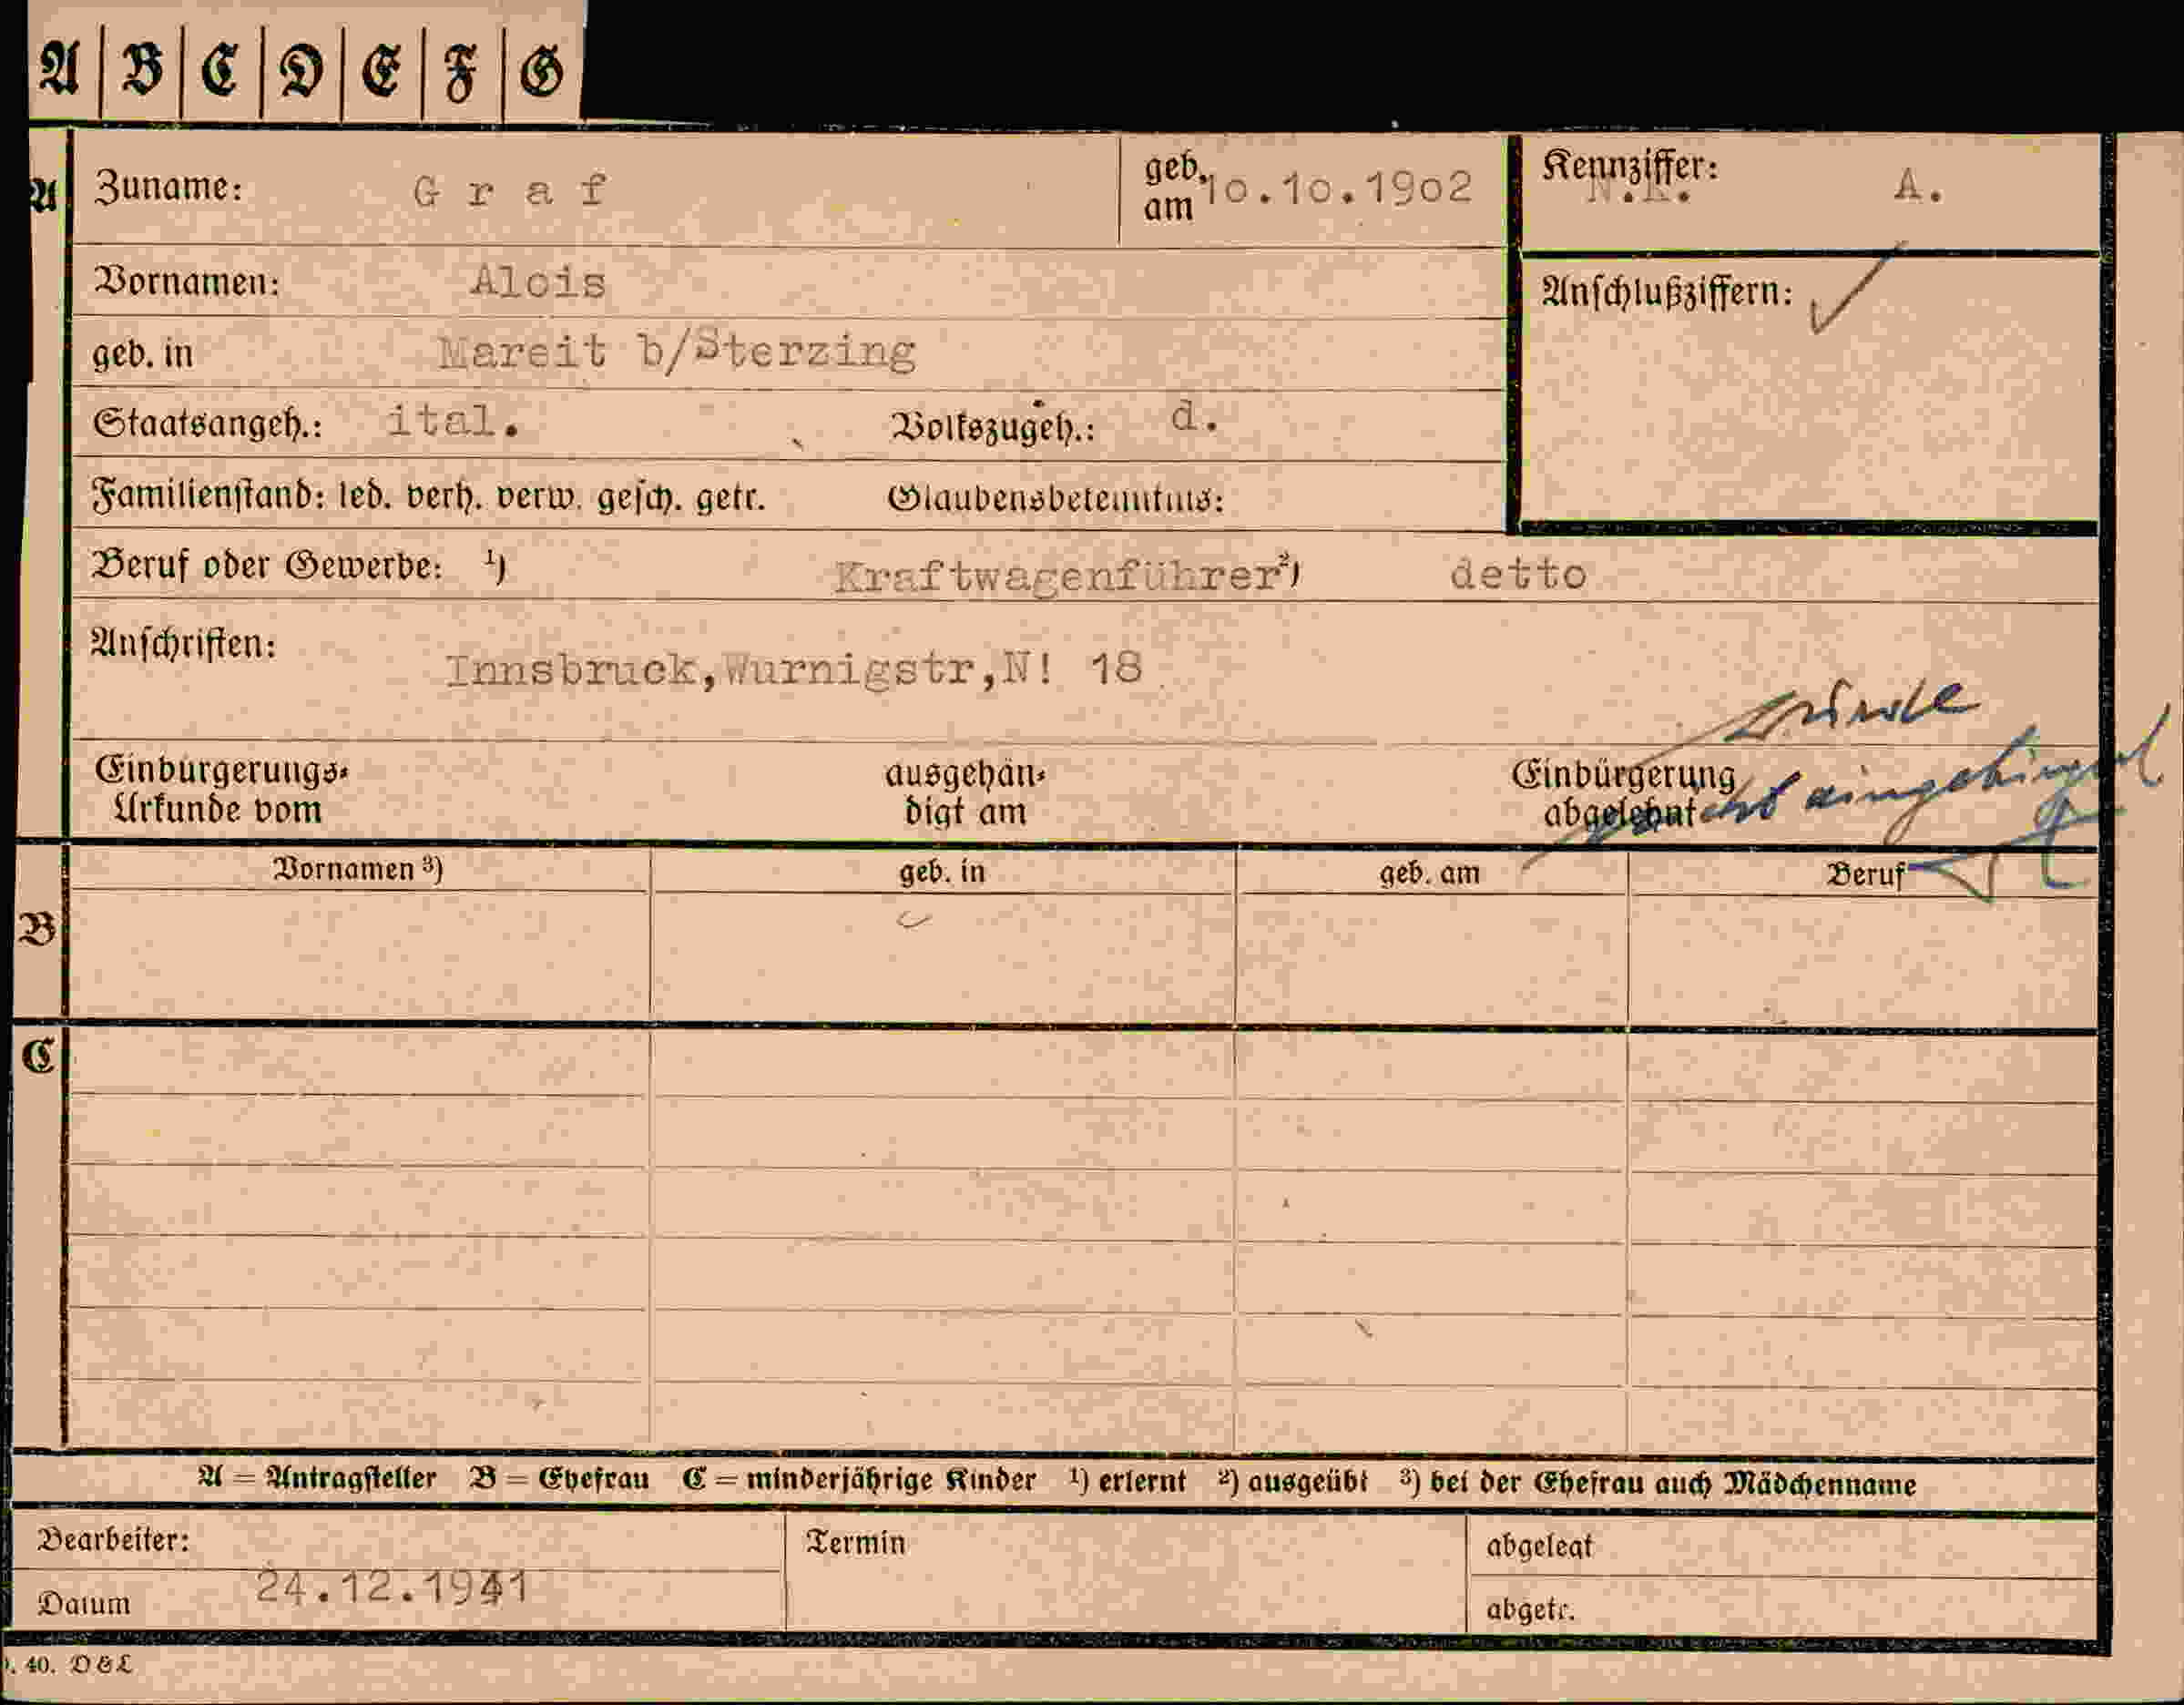 A | B | C | D | E | F | G
A Zuname: Graf geb. am 10.10.1902 Kennziffer: A.
Vornamen: Alois Anschlußziffern:
geb. in Mareit b/Sterzing
Staatsangeh.: ital. Volkszugeh.: d.
Familienstand: led. verh. verw. gesch. getr. Glaubensbekenntnis:
Beruf oder Gewerbe: ¹) Kraftwagenführer ²) detto
Anschriften: Innsbruck,Wurnigstr,N! 18
wurde
Einbürgerungs- ausgehän- Einbürgerung
Urkunde vom digt am abgelehnt
nicht eingebürgert
Vornamen ³) geb. in geb. am Beruf
B
C
A = Antragsteller B = Ehefrau C = minderjährige Kinder ¹) erlernt ²) ausgeübt ³) bei der Ehefrau auch Mädchenname
Bearbeiter: Termin abgelegt
Datum 24.12.1941 abgetr.
. 40. D & L